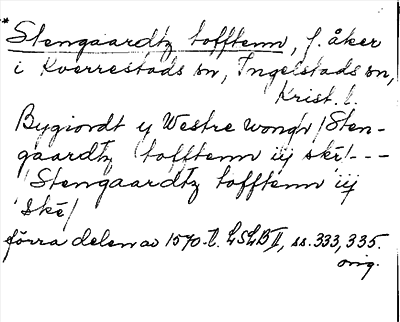 * Stengaardtz tofftenn, f. åker
i Kverrestads sn, Ingelstads sn,
Krist. l.
Bygiordt y Westre wongh / Sten-
gaardtz tofftenn iij skē! ---
Stengaardtz tofftenn iij
Skē /
förra delen av 1570-t. LSLB II, ss. 333, 335.
orig.